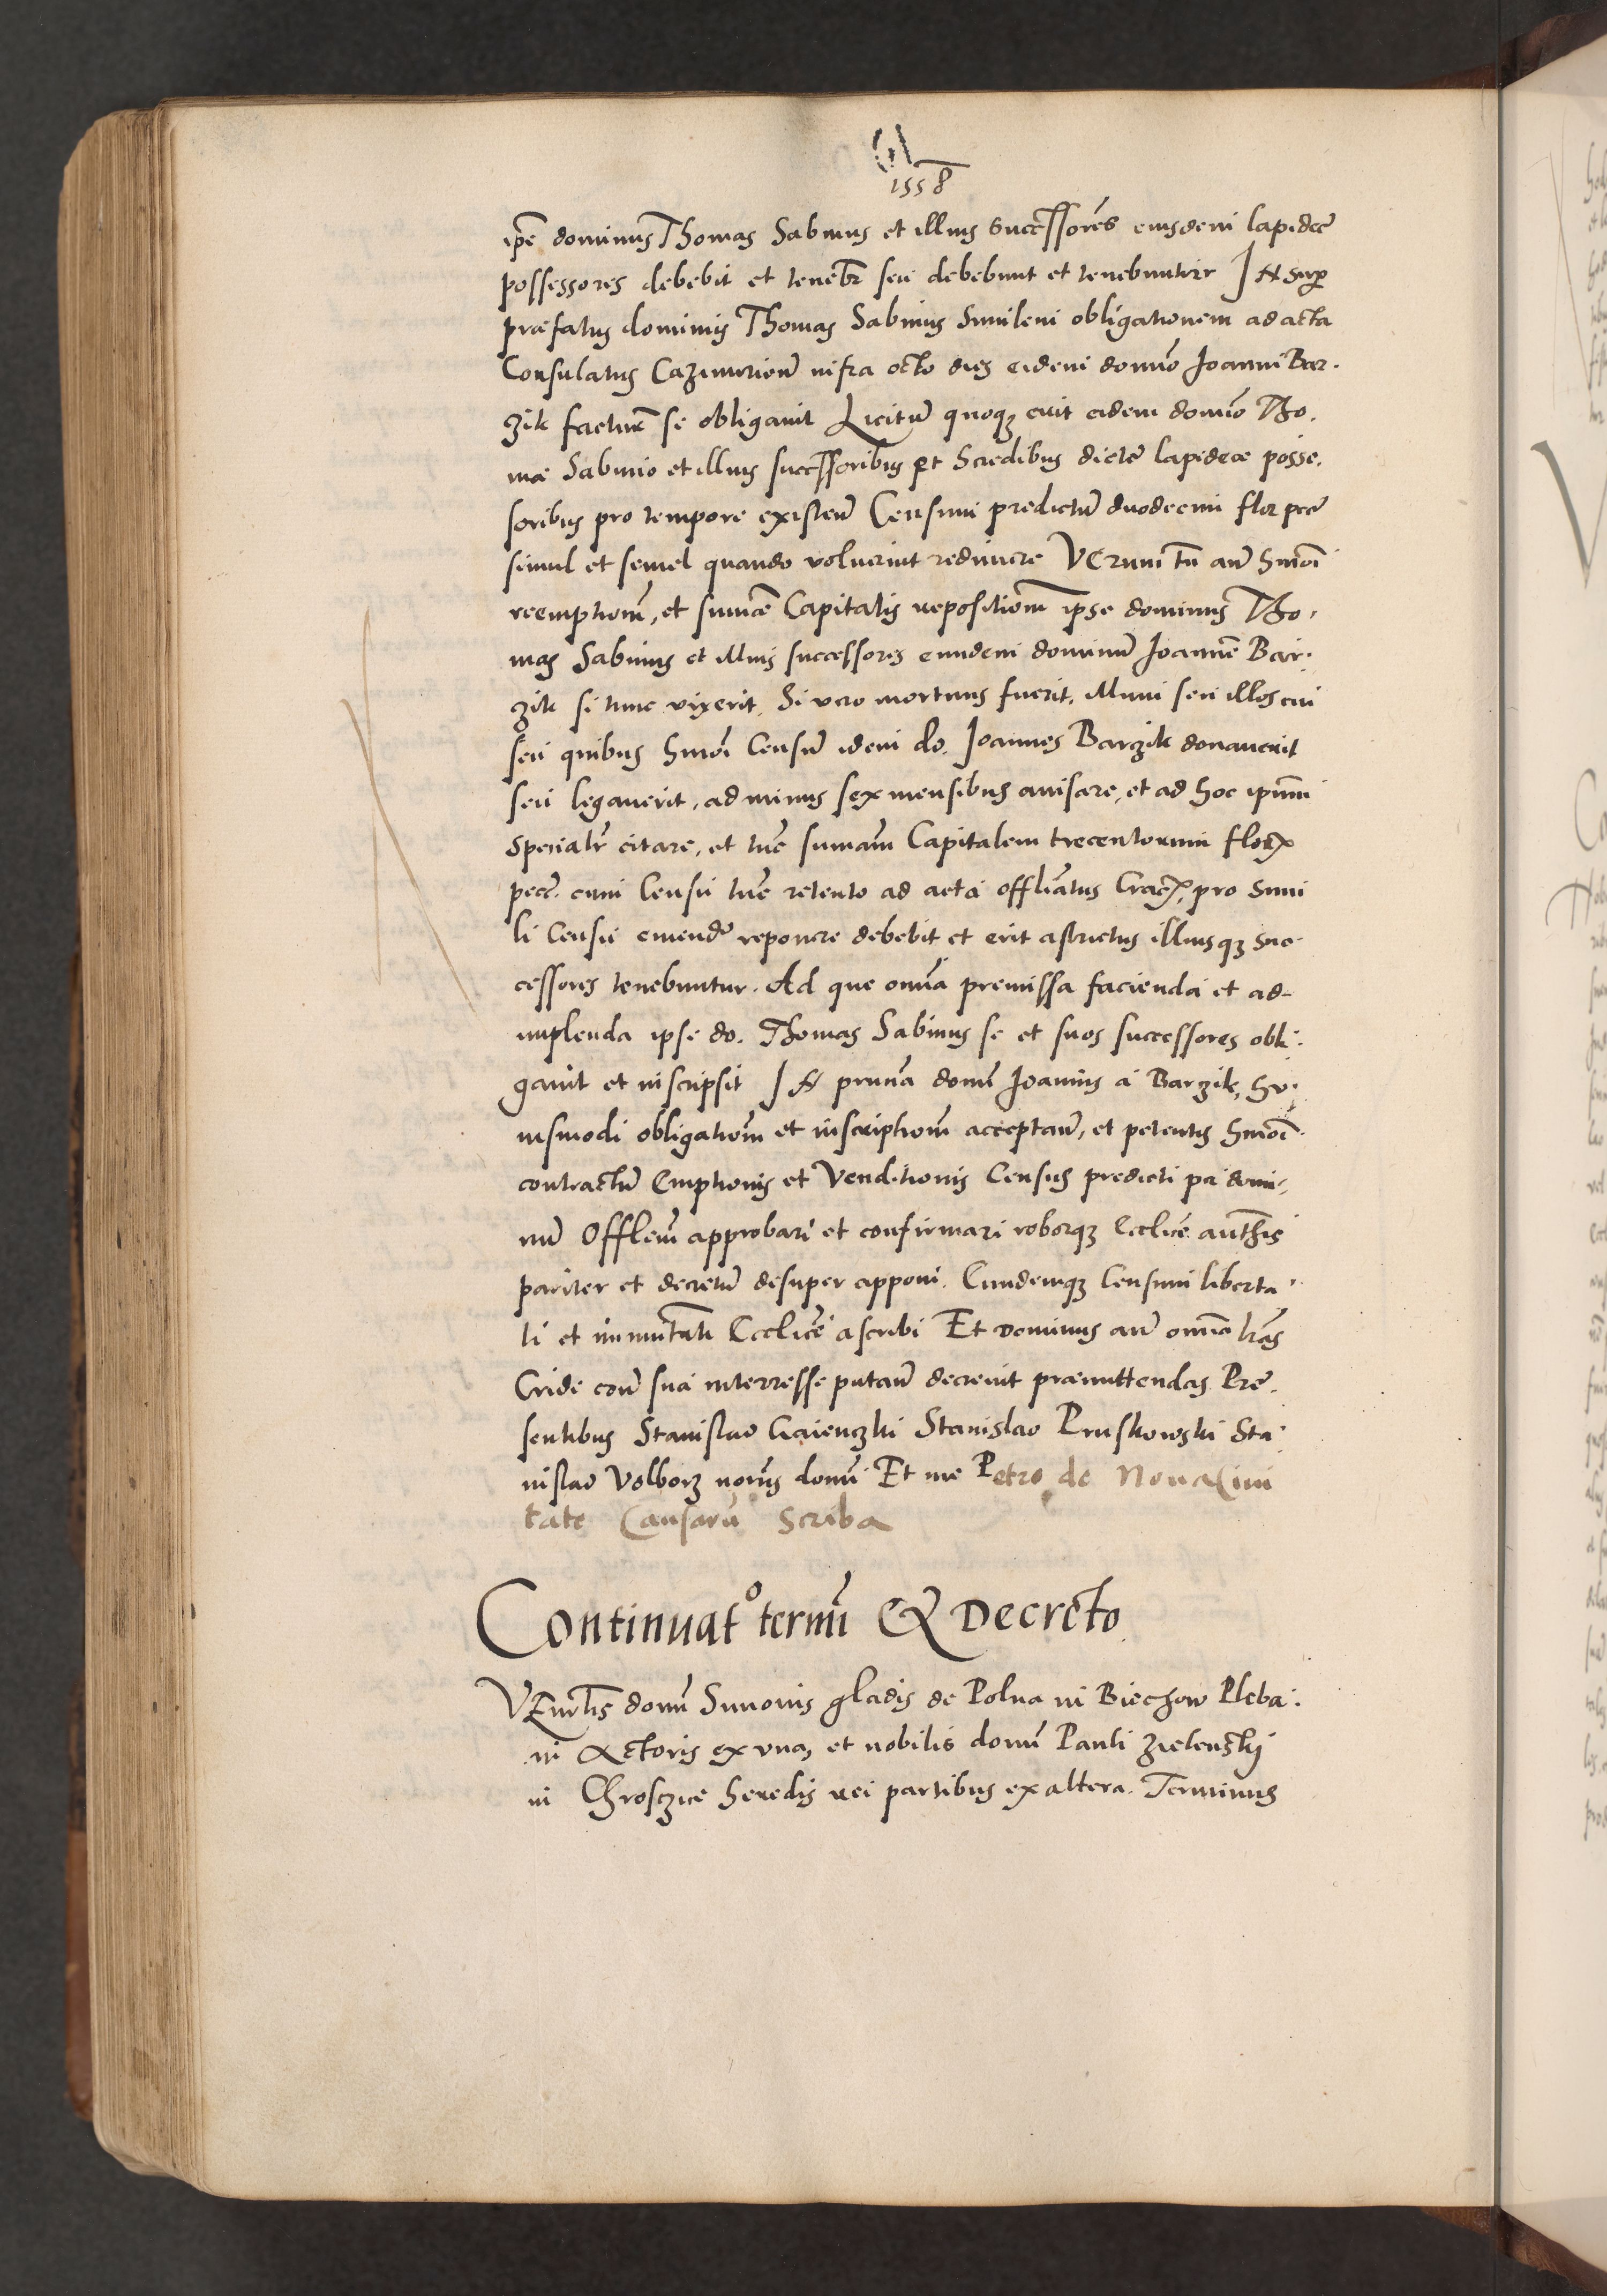 1558
ipē dominus Thomas Sabinus et illius successorēs eiusdem lapideē
possessores debebit et tenebr̄ seu debebunt et tenebuntur Insup̱
præfatus dominus Thomas Sabinus Similem obligationem ad acta
Consulatus Cazimirien̄ infra octo dies eidem domīo Joanni Bar.
zik factur̄ se obligauit Licitum̄ quoqꝫ erit eidem domīo Tho.
mæ Sabinio et illius successoribus et heredibus dictē lapideæ posse.
soribus pro tempore existen̄ Censum predictum̄ duodecim flor pec̄
simul et semel quando voluerint redimere Verum tn̄ an̄ hmōi
reemptionem̄, et sum̄æ Capitalis repositionem̄ ipse dominus Tho.
mas Sabinus et illius successores eundem dominum̄ Joannem̄ Bar.
zik si tunc vixerit. Si vero mortuus fuerit. illum seu illos cui
seu quibus hmōi Censum̄ idem do. Joannes Barzik donauerit
seu legauerit, ad minus sex mensibus auisare, et ad hoc ipum̄
specialr̄ citare, et tūc sumam̄ Capitalem trecentorum floꝝ
pec̄. cum Censu tūc retento ad acta offliatus Cracꝝ, pro simi
li Censu emendo reponere debebit et erit astrictus illiusqꝫ suc.
cessores tenebuntur. Ad que omīa premissa facienda et ad-
implenda ipse do. Thomas Sabinus se et suos successores obli.
gauit et inscripsit In prn̄cia domī Joannis a Barzik, hu.
iusmodi obligationem̄ et inscriptionem̄ acceptan̄, et petentis hmōi
contractum̄ Emptionis et Venditionis Census predicti per domi-
num̄ Offlem̄ approbari et confirmari roborqꝫ Eccliēe auth̄is
pariter et decretum̄ desuper apponi. Eundemqꝫ Censum liberta.
ti et immunitati Eccliēe ascribi Et Dominus an̄ omīa lrās
Cride con̄ sua interresse putan̄ decreuit præmittendas Præ.
sentibus Stanislao Gaienczki Stanislao Pruskowski Sta
nislao Volborz notr̄ijs domī Et me Petro de Noua Ciui
tate Causarū Scriba
Continuat͠o termī Ex Decreto
VEnr̄lis domī Simonis gladis de Polna in Biechow Pleba.
ni Actoris ex vna, et nobilis domī Pauli Zielenczkÿ
in Chrosczice heredis rei partibus ex altera. Terminus